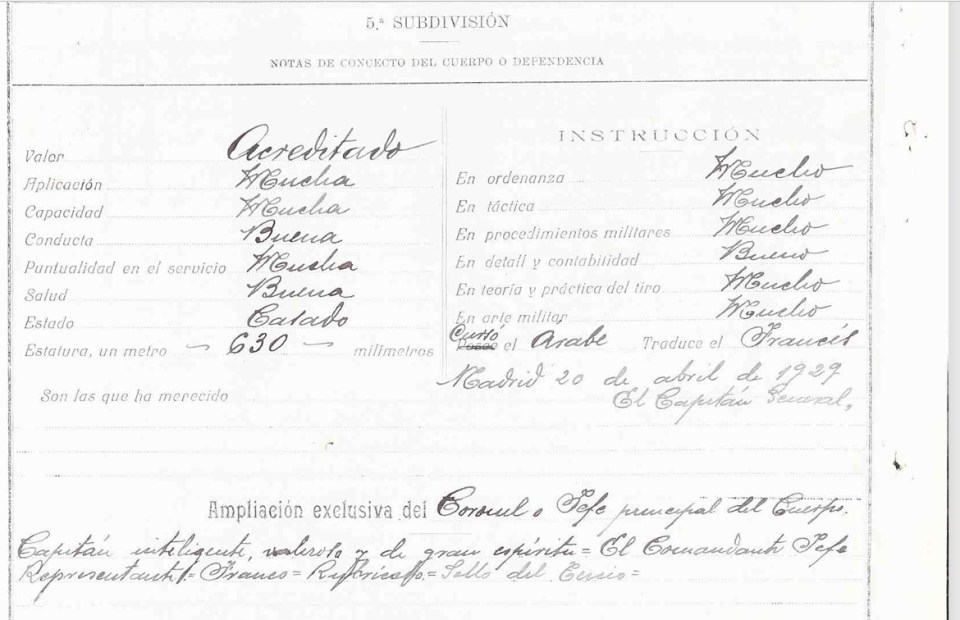 5.ª SUBDIVISIÓN
NOTAS DE CONCECTO DEL CUERPO O DEPENDENCIA
Valor Acreditado
Aplicación Mucha
Capacidad Mucha
Conducta Buena
Puntualidad en el servicio Mucha
Salud Buena
Estado Casado
Estatura, un metro — 630 — milímetros
Son las que ha merecido
INSTRUCCIÓN
En ordenanza Mucho
En táctica Mucho
En procedimientos militares Mucho
En detall y contabilidad Bueno
En teoría y práctica del tiro Mucho
En arte militar Mucho
Cursó
Posee el Arabe Traduce el Francés
Madrid 20 de abril de 1929
El Capitán General,
Ampliación exclusiva del Coronel o Jefe principal del Cuerpo.
Capitán inteligente, valeroso y de gran espíritu = El Comandante Jefe
Representante = Franco = Rubricado = Sello del Tercio =